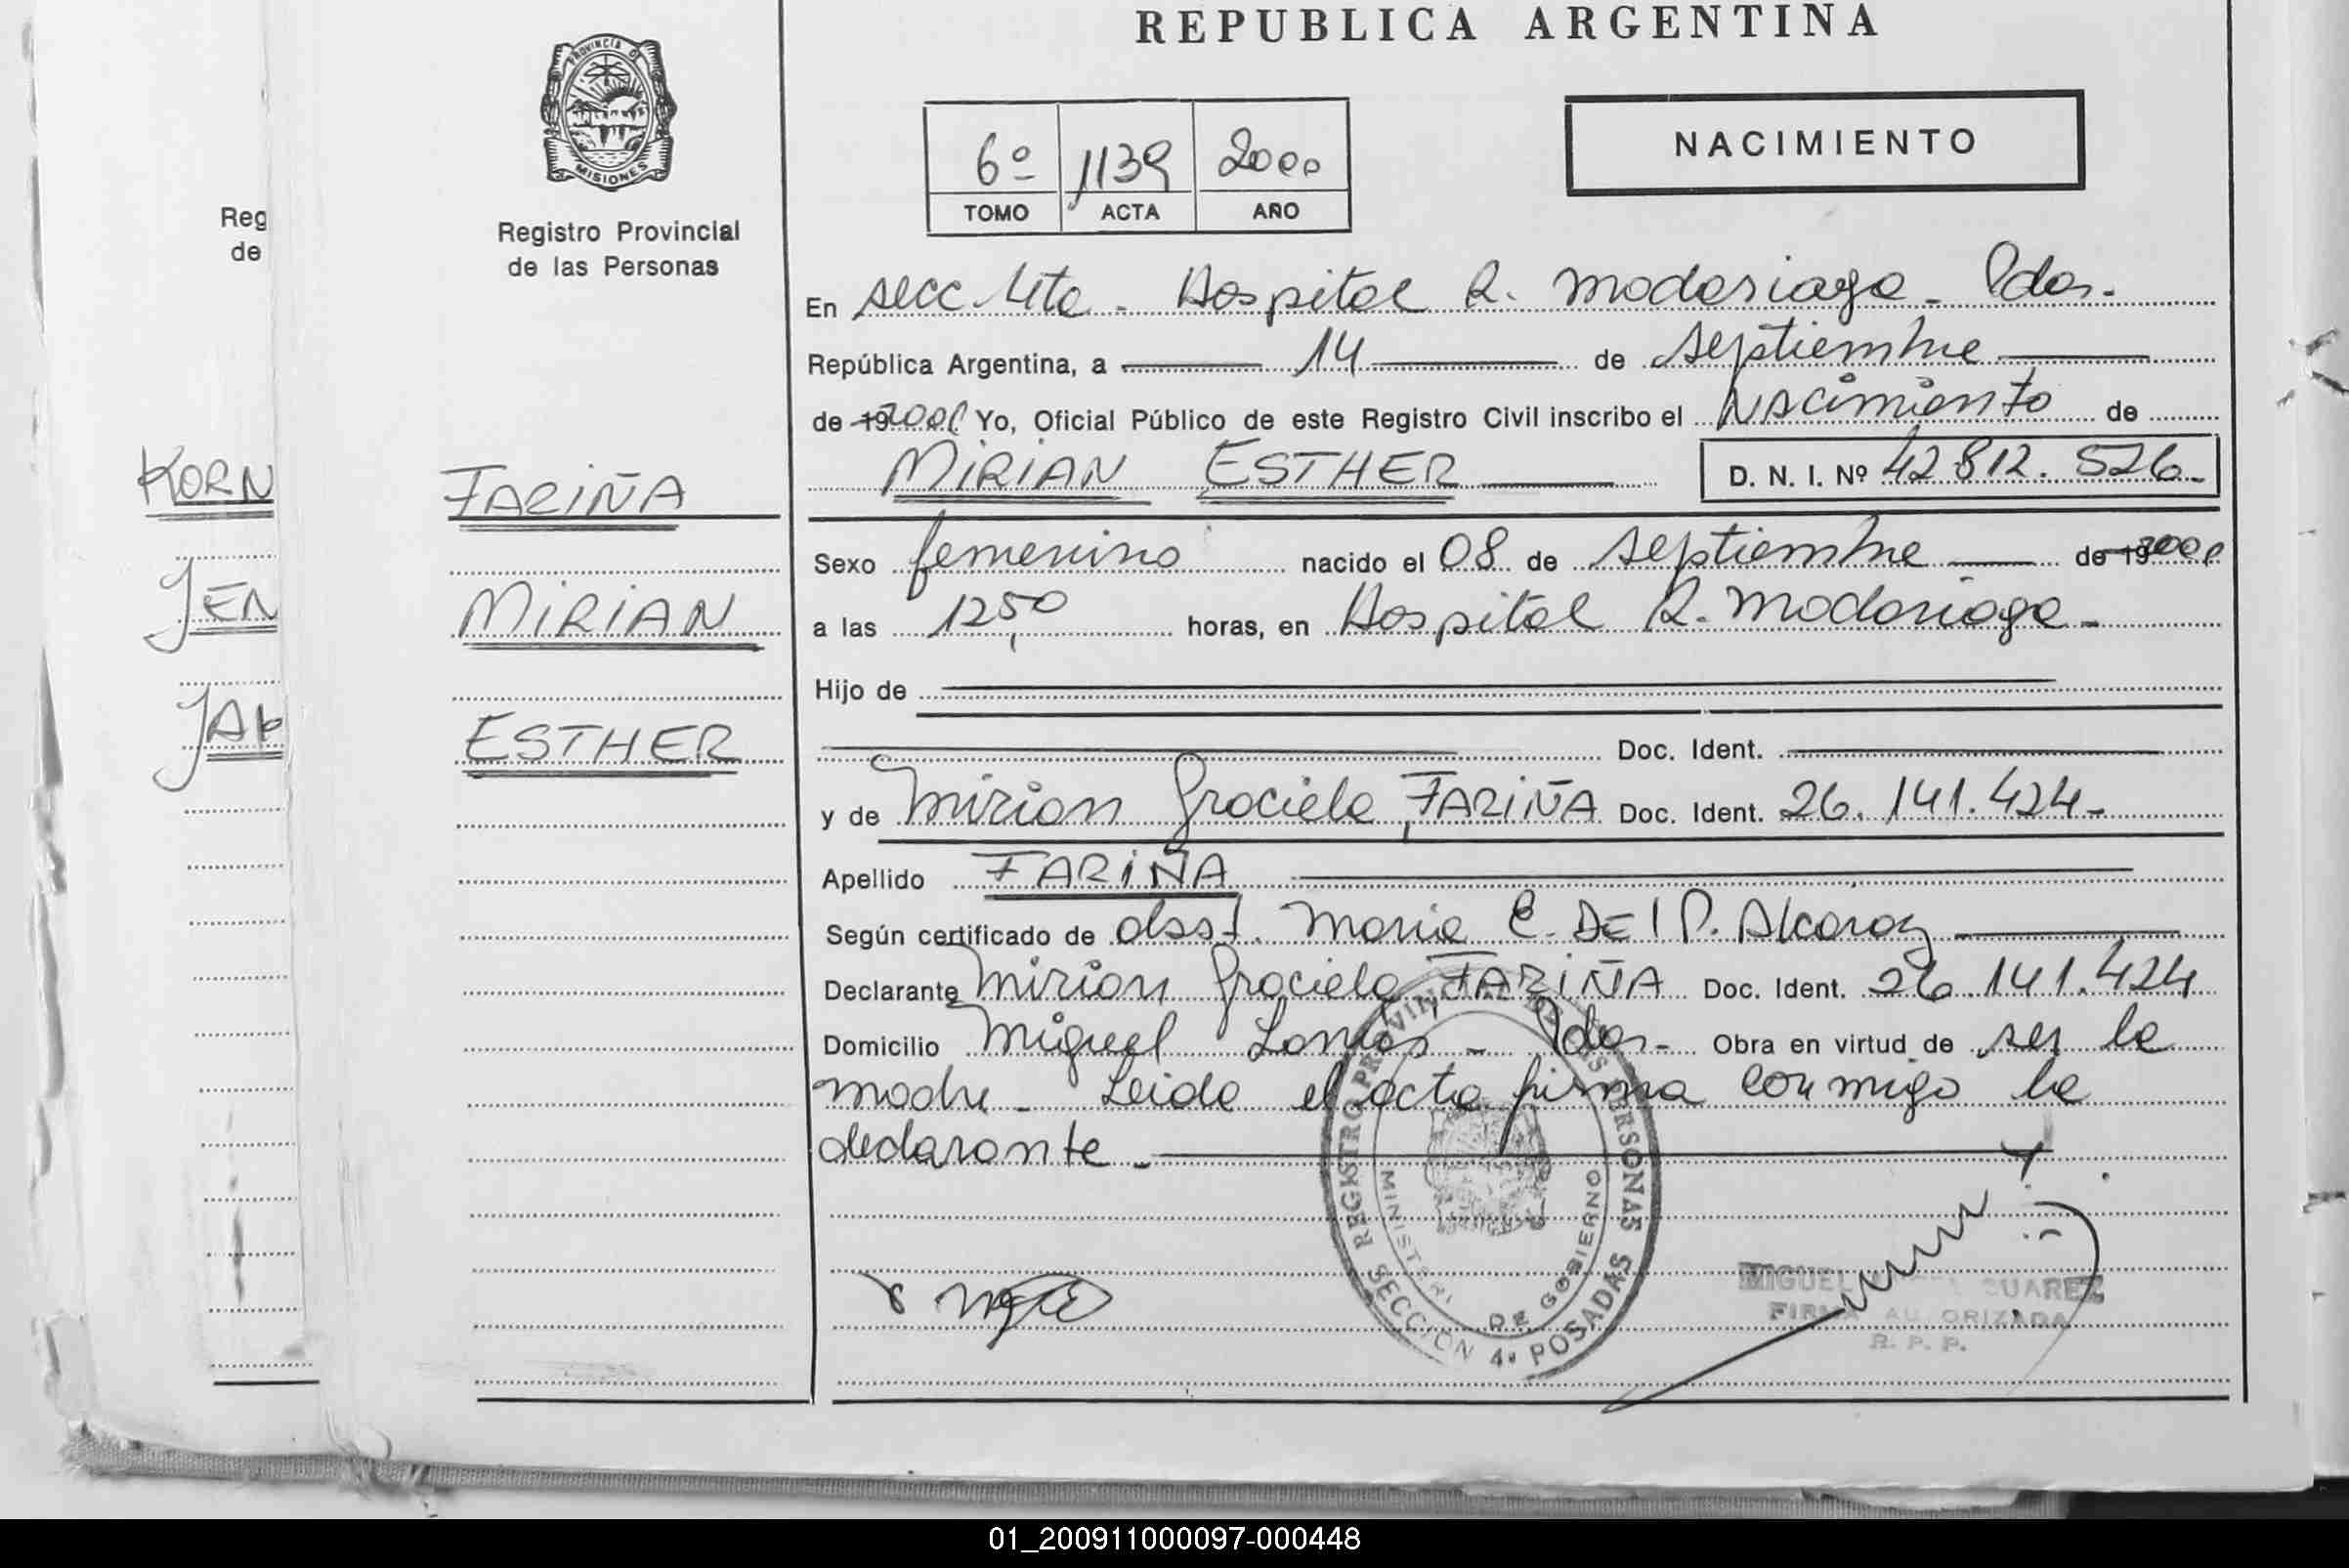 REPUBLICA ARGENTINA
PROVINCIA DE
MISIONES
Registro Provincial
de las Personas
Reg
de
6º 1139 2000
TOMO ACTA AÑO
NACIMIENTO
En secc 4ta - Hospital R. Madariaga - Pdas.
República Argentina, a 14 de septiembre
de 192000 Yo, Oficial Público de este Registro Civil inscribo el Nacimiento de
MIRIAN ESTHER D. N. I. Nº 42.812.526.-
KORN
JEN
FARIÑA
MIRIAN
ESTHER
Sexo femenino nacido el 08 de septiembre de 192000
a las 12,50 horas, en Hospital R. Madariaga -
Hijo de
Doc. Ident.
y de Mirian Graciela FARIÑA Doc. Ident. 26.141.424-
Apellido FARIÑA
Según certificado de obst. Maria E. DEl P. Alcaraz
Declarante Mirian Graciela FARIÑA Doc. Ident. 26.141.424
Domicilio Miguel Lanús - Pdas- Obra en virtud de ser la
madre - Leida el acta firma conmigo la
declarante -
REGISTRO PROVINCIAL DE LAS PERSONAS
MINISTERI DE GOBIERNO
SECCION 4ª POSADAS
MIGUEL SUAREZ
FIRMA AUTORIZADA
R. P. P.
01_200911000097-000448